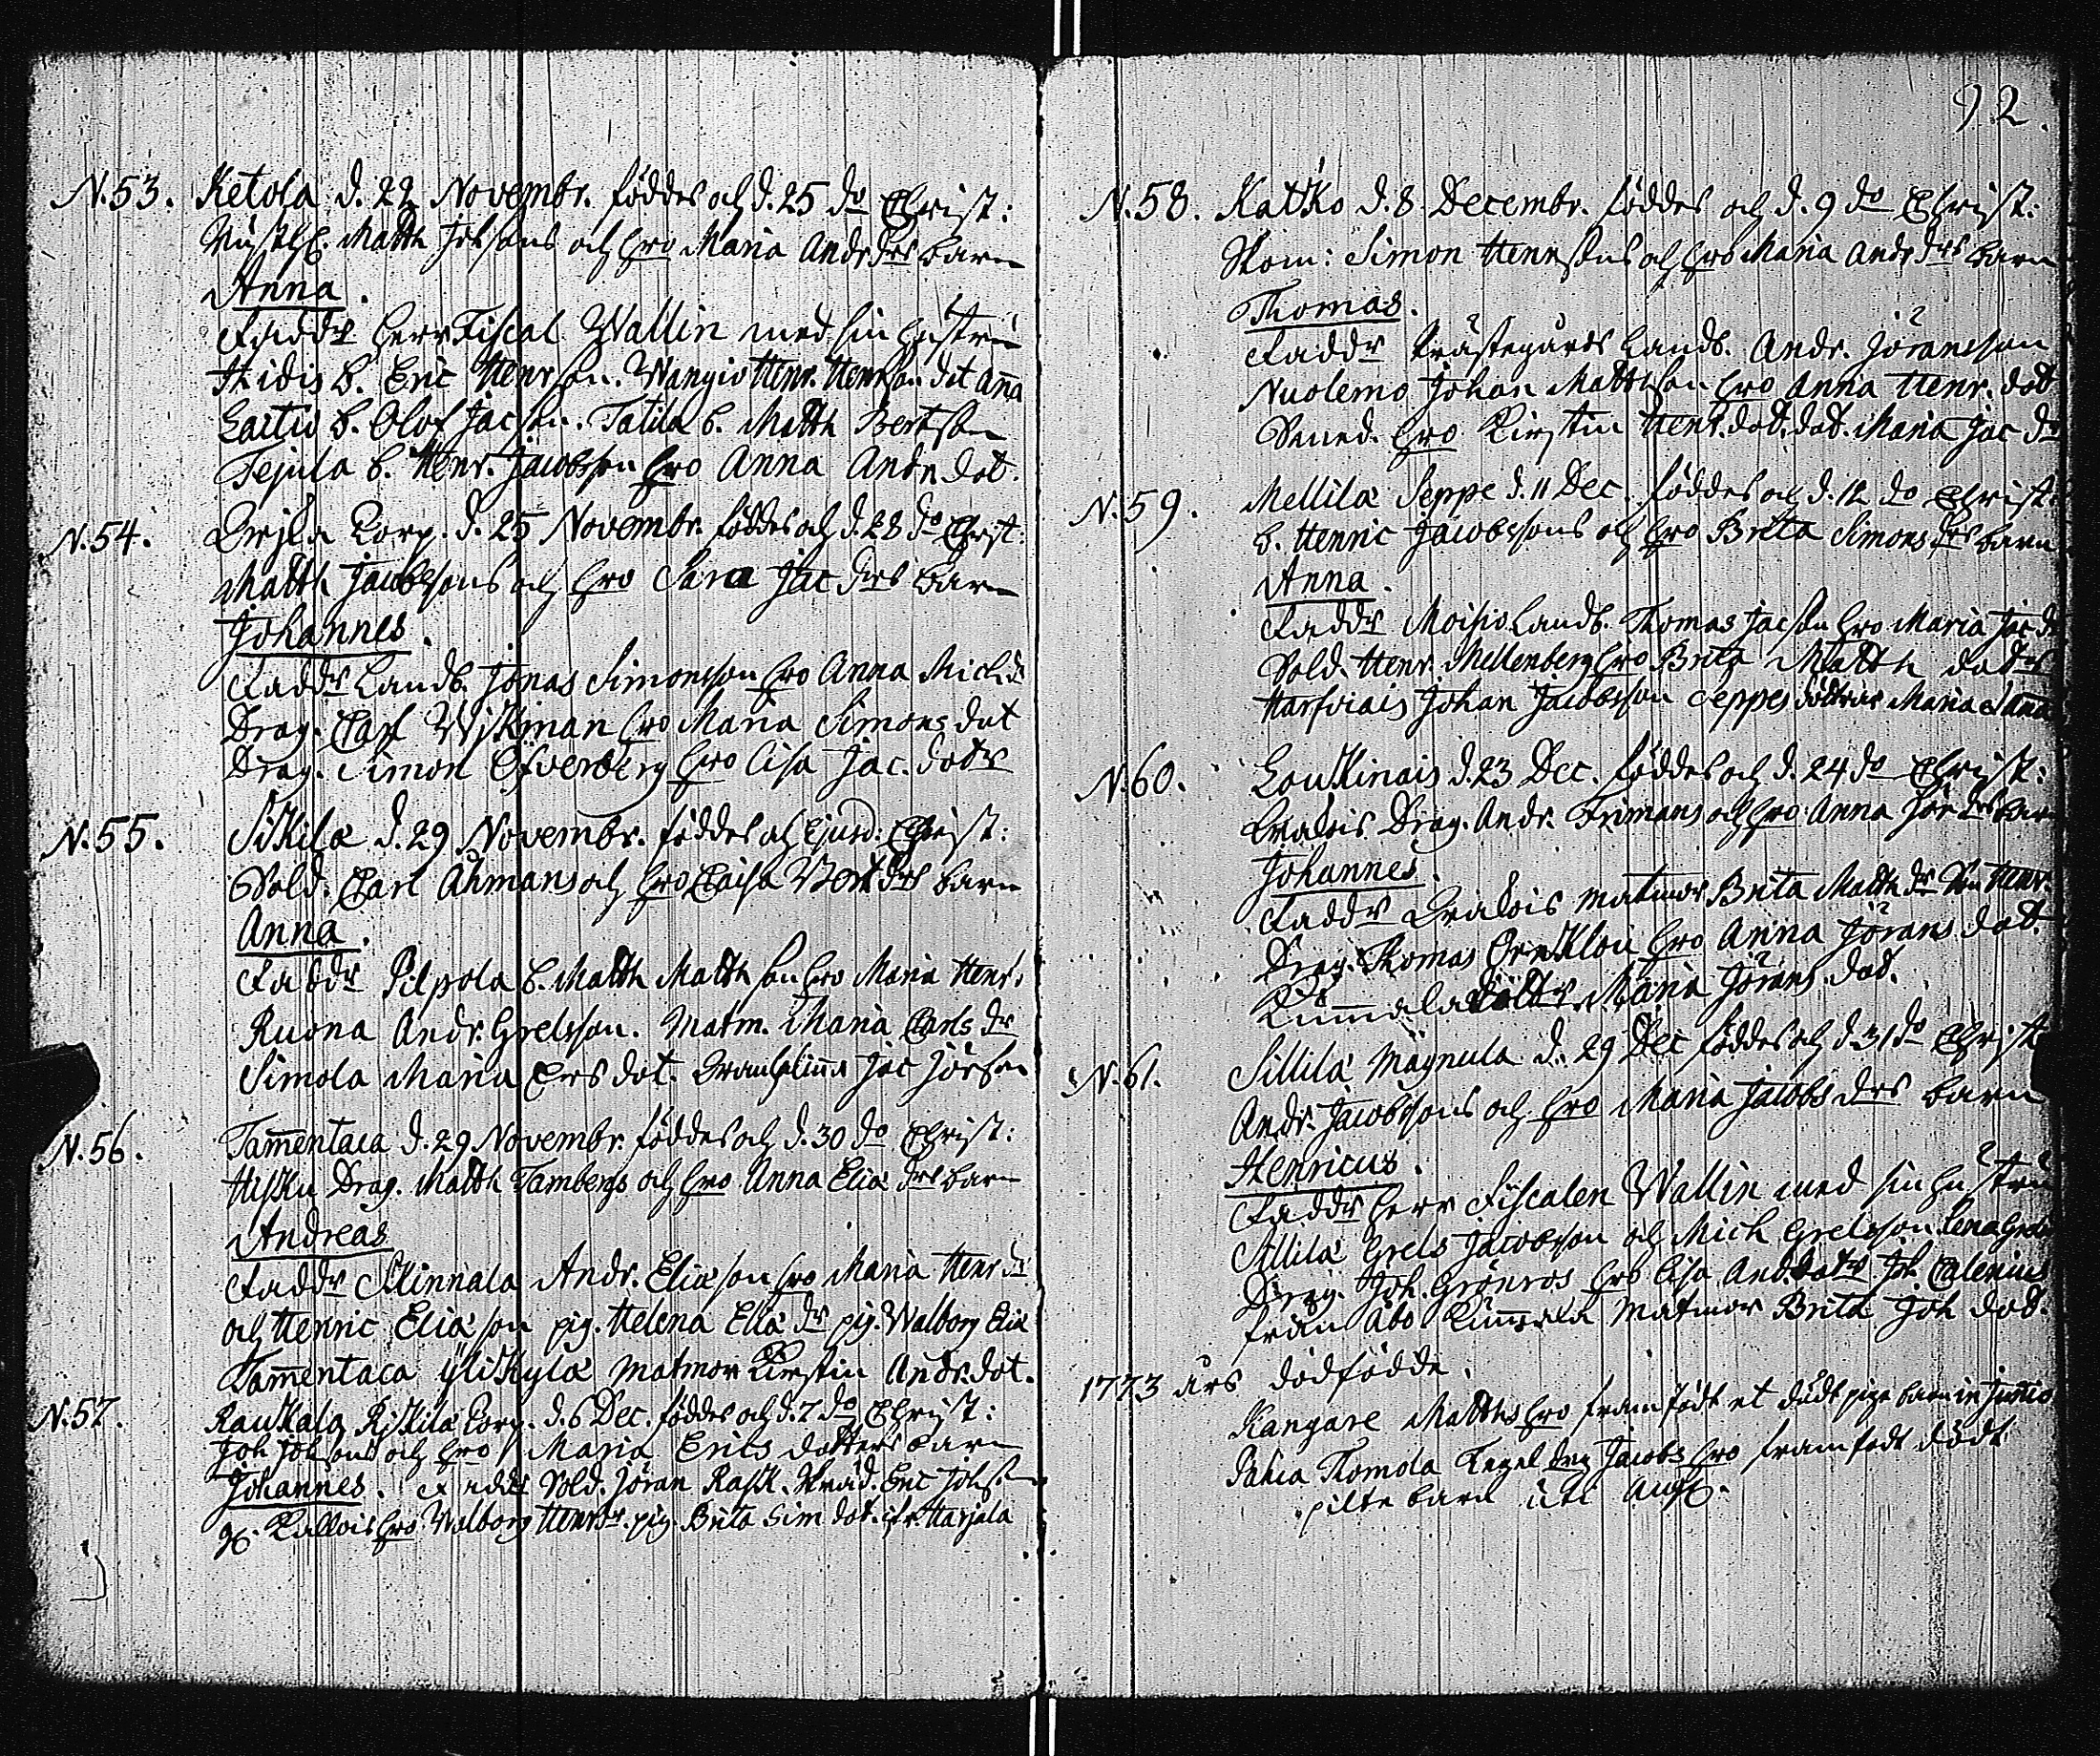 92.
N.53. Ketola d. 22 Novembr. föddes och d. 25 do Christ:
Matth Johsons och hro Maria Andr drs barn
Anna.
Faddr herr Fiscal Wallin med sin hustru
Hidis b. Eric Henr son. Wangio Henr. Henrson dot Anna
Laitio b. Olof Jac son. Tatila b. Matth Bertson
Tejula b. Henr. Jacobsson hro Anna Andr dot.
N.54. Corp. d. 25 Novembr. föddes och d. 28 do Christ:
Matth Jacobssons och hro Sara Jac drs barn
Johannes.
Faddr Landb. Jonas Simonsson hro Anna Mich dr
Drag. Carl Wikman hro Maria Simons dot
Drag. Simon Öfverberg hro Lisa Jac. dotr
N.55. Sikila d. 29 Novembr. föddes och ejusd: Christ:
Sold. Carl Åhmans och hro Caisa Bert drs barn
Anna.
Faddr Pilpola b. Matth Matth son hro Maria Henr.
Ruona Andr. Grelsson. Matm. Maria Carls dr
Simola Maria Ers dot. Jac Jörson
N.56. Tam̅entaca d. 29 Novembr. föddes och d. 30 do Christ:
Hisku Drag. Matth Tambergs och hro Anna Eliæ drs barn
Andreas
Faddr Skinnala Andr. Eliæ son hro Maria Henr dr
och Henric Eliæ son pig. Helena Eliæ dr pig. Walborg Eliæ
Tam̅entaca Ylikylä matmor Kirstin Andr. dot.
N.57. Raukala Riskila Corp. d. 6 Dec. föddes och d. 7 do Christ:
Joh Johsons och hro Maria Erics dotters barn
Johannes. Faddr Sold. Jöran Rask. Skräd. Eric Johson
Kallois hro Walborg Henr dr. pig. Brita Sim dot. ifr. Harjula
N.58. Katko d. 8 Decembr. föddes och d. 9 do Christ:
Skom: Simon Henrsons och hro Maria Andr drs barn
Thomas.
Faddr Prästegårds Landb. Andr. Jöransson
Nuolemo Johan Mattsson hro Anna Henr. dot
Smed. hro Kirstin Henr. dot. dot. Maria Jac dr
N.59. Mellilä Seppe d. 11 Dec. föddes och d. 12 do Christ:
b. Henric Jacobssons och hro Brita Simons drs barn
Anna.
Faddr Moisio Landb. Thomas Jacson hro Maria Jac dr
Sold. Henr. Mellenberg hro Brita Matth dotr
Harfviais Johan Jacobsson Seppes döttrar Maria Anna
N.60. Louskinais d. 23 Dec. föddes och d. 24 do Christ:
Drag. Andr. Frimans och hro Anna Jör drs barn
Johannes.
Faddr matmor Brita Matth dr Henr.
Drag. Thomas Örnklou hro Anna Jörans dot.
Kum̅ala Maria Jörans dot.
N.61. Sillilä Magnula d. 29 Dec föddes och d. 31 do Christ
Andr. Jacobssons och hro Maria Jacobs drs barn
Henricus.
Faddr herr Fiscalen Wallin med sin hustru
Sillilä Grels Jacobson och Mich Grelsson Lena Grels
Drag. Joh. Grönros hro Lisa And. dotr Joh Calenius
från Åbo Kum̅ala matmor Brita Joh dot.
1773 års dödfödde.
Kangare Matths hro framfödt et dödt pige barn in Junio
Pahca Thomola Jacobs hro framfödt dödt
pilte barn uti Aug.